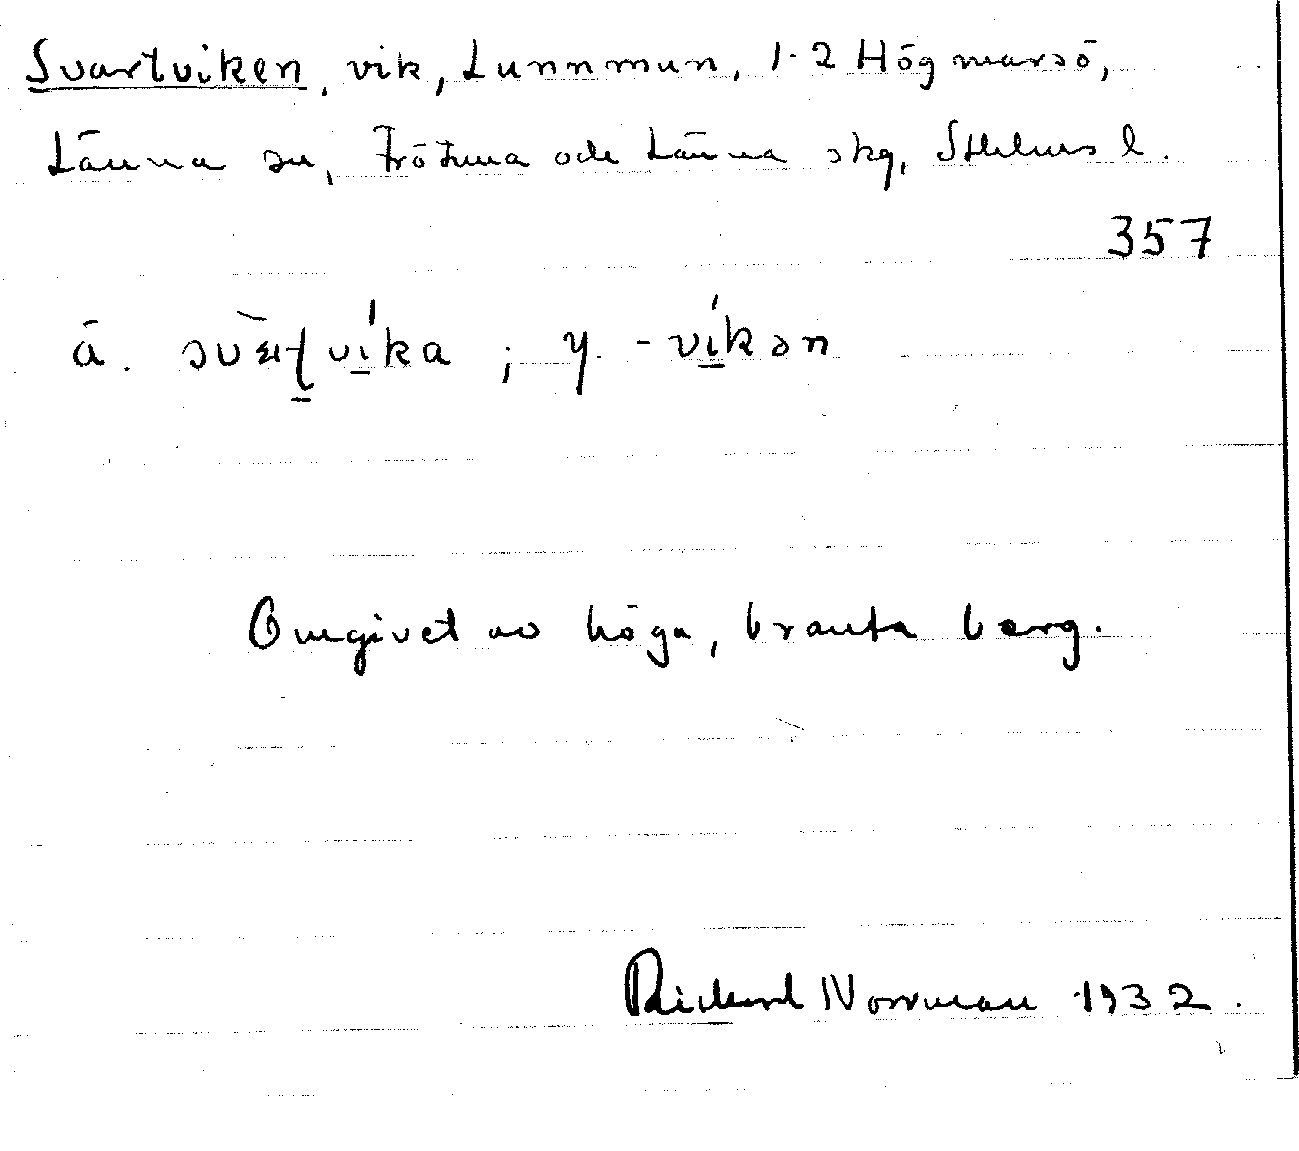 Svartviken, vik, Lunnmun, 1-2 Högmarsö,
Länna sn, Frötuna och Länna skg, Sthlms l.
357
ä. svæʈvika ; y. -vikən
Omgivet av höga, branta berg.
Rickard Norrman 1932.